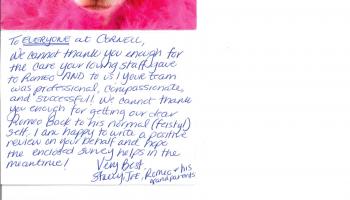 To EVERYONE at CORNELL,
We cannot thank you enough for
the care your loving staff gave
to Romeo AND to us! Your team
was professional, compassionate,
and successful! We cannot thank
you enough for getting our dear
Romeo Back to his normal (feisty)
self. I am happy to write a positive
review on your behalf and hope
the enclosed survey helps in the
meantime!
Very Best
Romeo + his
grandparents